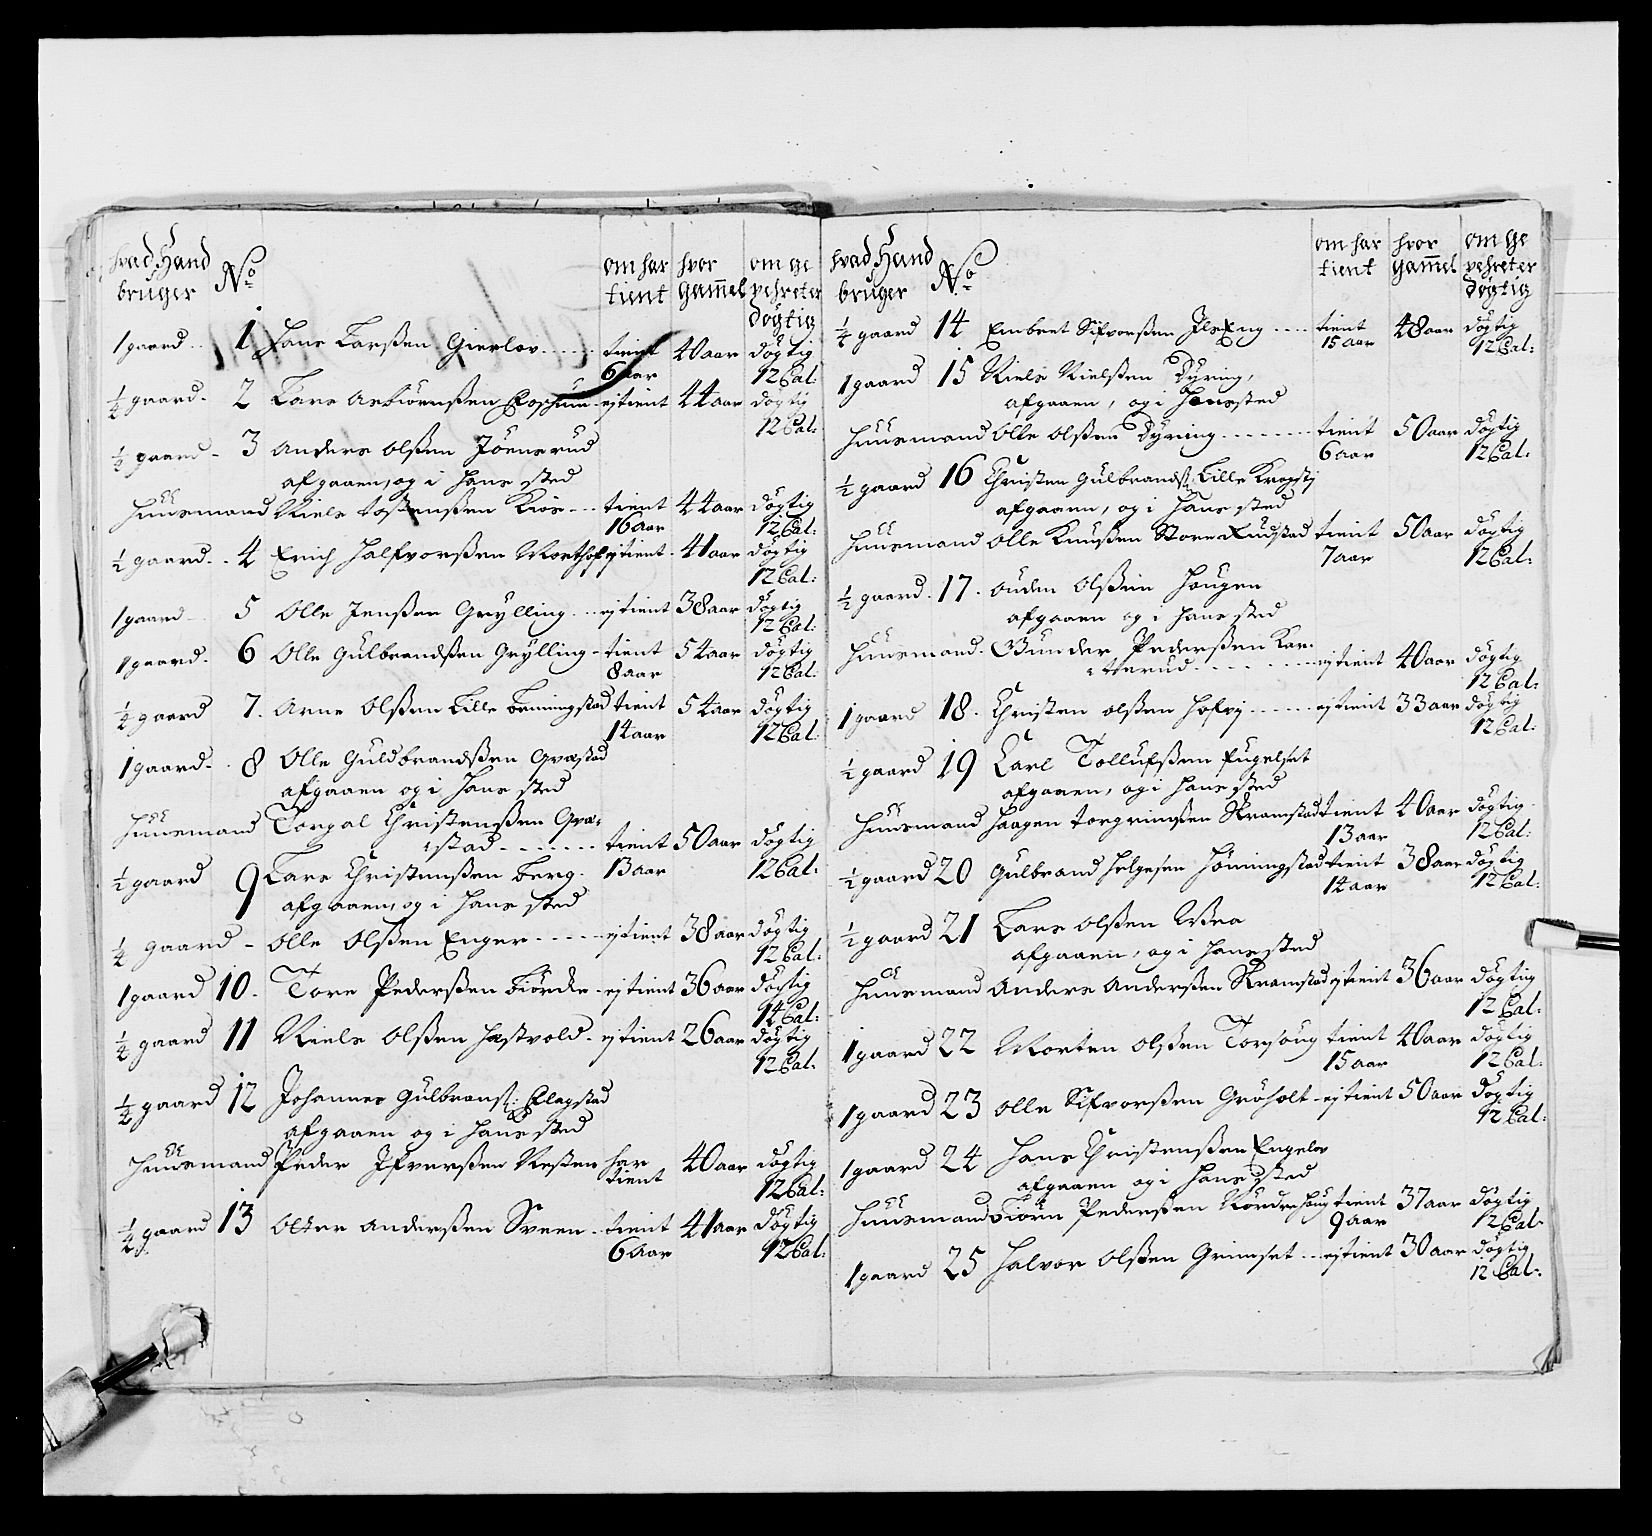 hvad Hand bruger No om har tient hvor Gam̄el om ge vehreter døgtig
1 gaard 1 Hans Larßen Gierlov tient 6 aar 40 aar døgtig 12 Cal:
½ gaard 2 Lars Asbiørnßen ej tient 44 aar døgtig 12 Cal:
½ gaard 3 Anders Olßen Jøensrud
afgaaen, og i Hans sted
Huusmand Niels Tostenßen Kiøs tient 16 aar 44 aar døgtig 12 Cal:
½ gaard 4 Erich Halfvorßen ej tient 41 aar døgtig 12 Cal:
1 gaard 5 Olle Jenßen Grylling ej tient 38 aar døgtig 12 Cal:
1 gaard 6 Olle Gulbrandßen Grylling tient 8 aar 54 aar døgtig 12 Cal:
½ gaard 7. Arne Olßen Lille Benningstad tient 14 aar 54 aar døgtig 12 Cal:
1 gaard 8 Olle Guldbrandßen Grastad
afgaaen og i Hans sted
Huusmand Torgal Christenßen Gra:
stad tient 13 aar 50 aar døgtig 12 Cal:
½ gaard 9 Lars Christenßen Berg
afgaaen, og i Hans sted
½ gaard Olle Olßen Enger ej tient 38 aar døgtig 12 Cal:
1 gaard 10. Tore Pederßen Fiørde ej tient 36 aar døgtig 14 Cal:
½ gaard 11 Niels Olßen Hastvold ej tient 26 aar døgtig 12 Cal:
½ gaard 12 Johannes Gulbranß: Elagstad
afgaaen og i Hans sted
Huusmand Peder Ifverßen Neßen har tient 40 aar døgtig 12 Cal:
½ gaard 13 Anderßen Sveen tient 6 Aar 41 aar døgtig 12 Cal:
hvad Hand bruger No om har tient hvor Gam̄el om ge vehreter døgtig
½ gaard 14 Embret Sifvorßen IlsEng tient 15 aar 48 aar døgtig 12 Cal:
1 gaard 15 Niels Nielßen Dyring,
afgaaen, og i Hans sted
Huusmand Olle Olßen Dyring tient 6 aar 50 aar døgtig 12 Cal:
½ gaard 16 Christen Gulbrandß: Lille
afgaaen, og i Hans sted
Huusmand Olle Knußen Store tient 7 aar 50 aar døgtig 12 Cal:
½ gaard 17. Auden Olßen Hougen
afgaaen og i Hans sted
Huusmand Gunder Pederßen Kar:
tterud ej tient 40 aar døgtig 12 Cal:
1 gaard 18. Christen Olßen Hofvj ej tient 33 aar døgtig 12 Cal:
½ gaard 19 Carl Tollufßen Fugelset
afgaaen, og i Hans sted
Huusmand Haagen Torgrimßen Kramstad tient 13 aar 40 aar døgtig 12 Cal:
½ gaard 20 Gulbrand Helgesen Hønningstad tient 14 aar 38 aar døgtig 12 Cal:
½ gaard 21 Lars Olßen
afgaaen, og i Hans sted
Huusmand Anders Anderßen Kramstad ej tient 36 aar døgtig 12 Cal:
1 gaard 22 Morten Olßen Torsoug tient 15 aar 40 aar døgtig 12 Cal:
1 gaard 23 Olle Sifvorßen Grøholt ej tient 50 aar døgtig 12 Cal:
1 gaard 24 Hans Christenßen Engelov
afgaaen og i Hans sted
Huusmand Biørn Pederßen Nordrehoug tient 9 aar 37 aar døgtig 12 Cal
1 gaard 25 Halvor Olßen Grimset ej tient 30 aar døgtig 12 Cal: